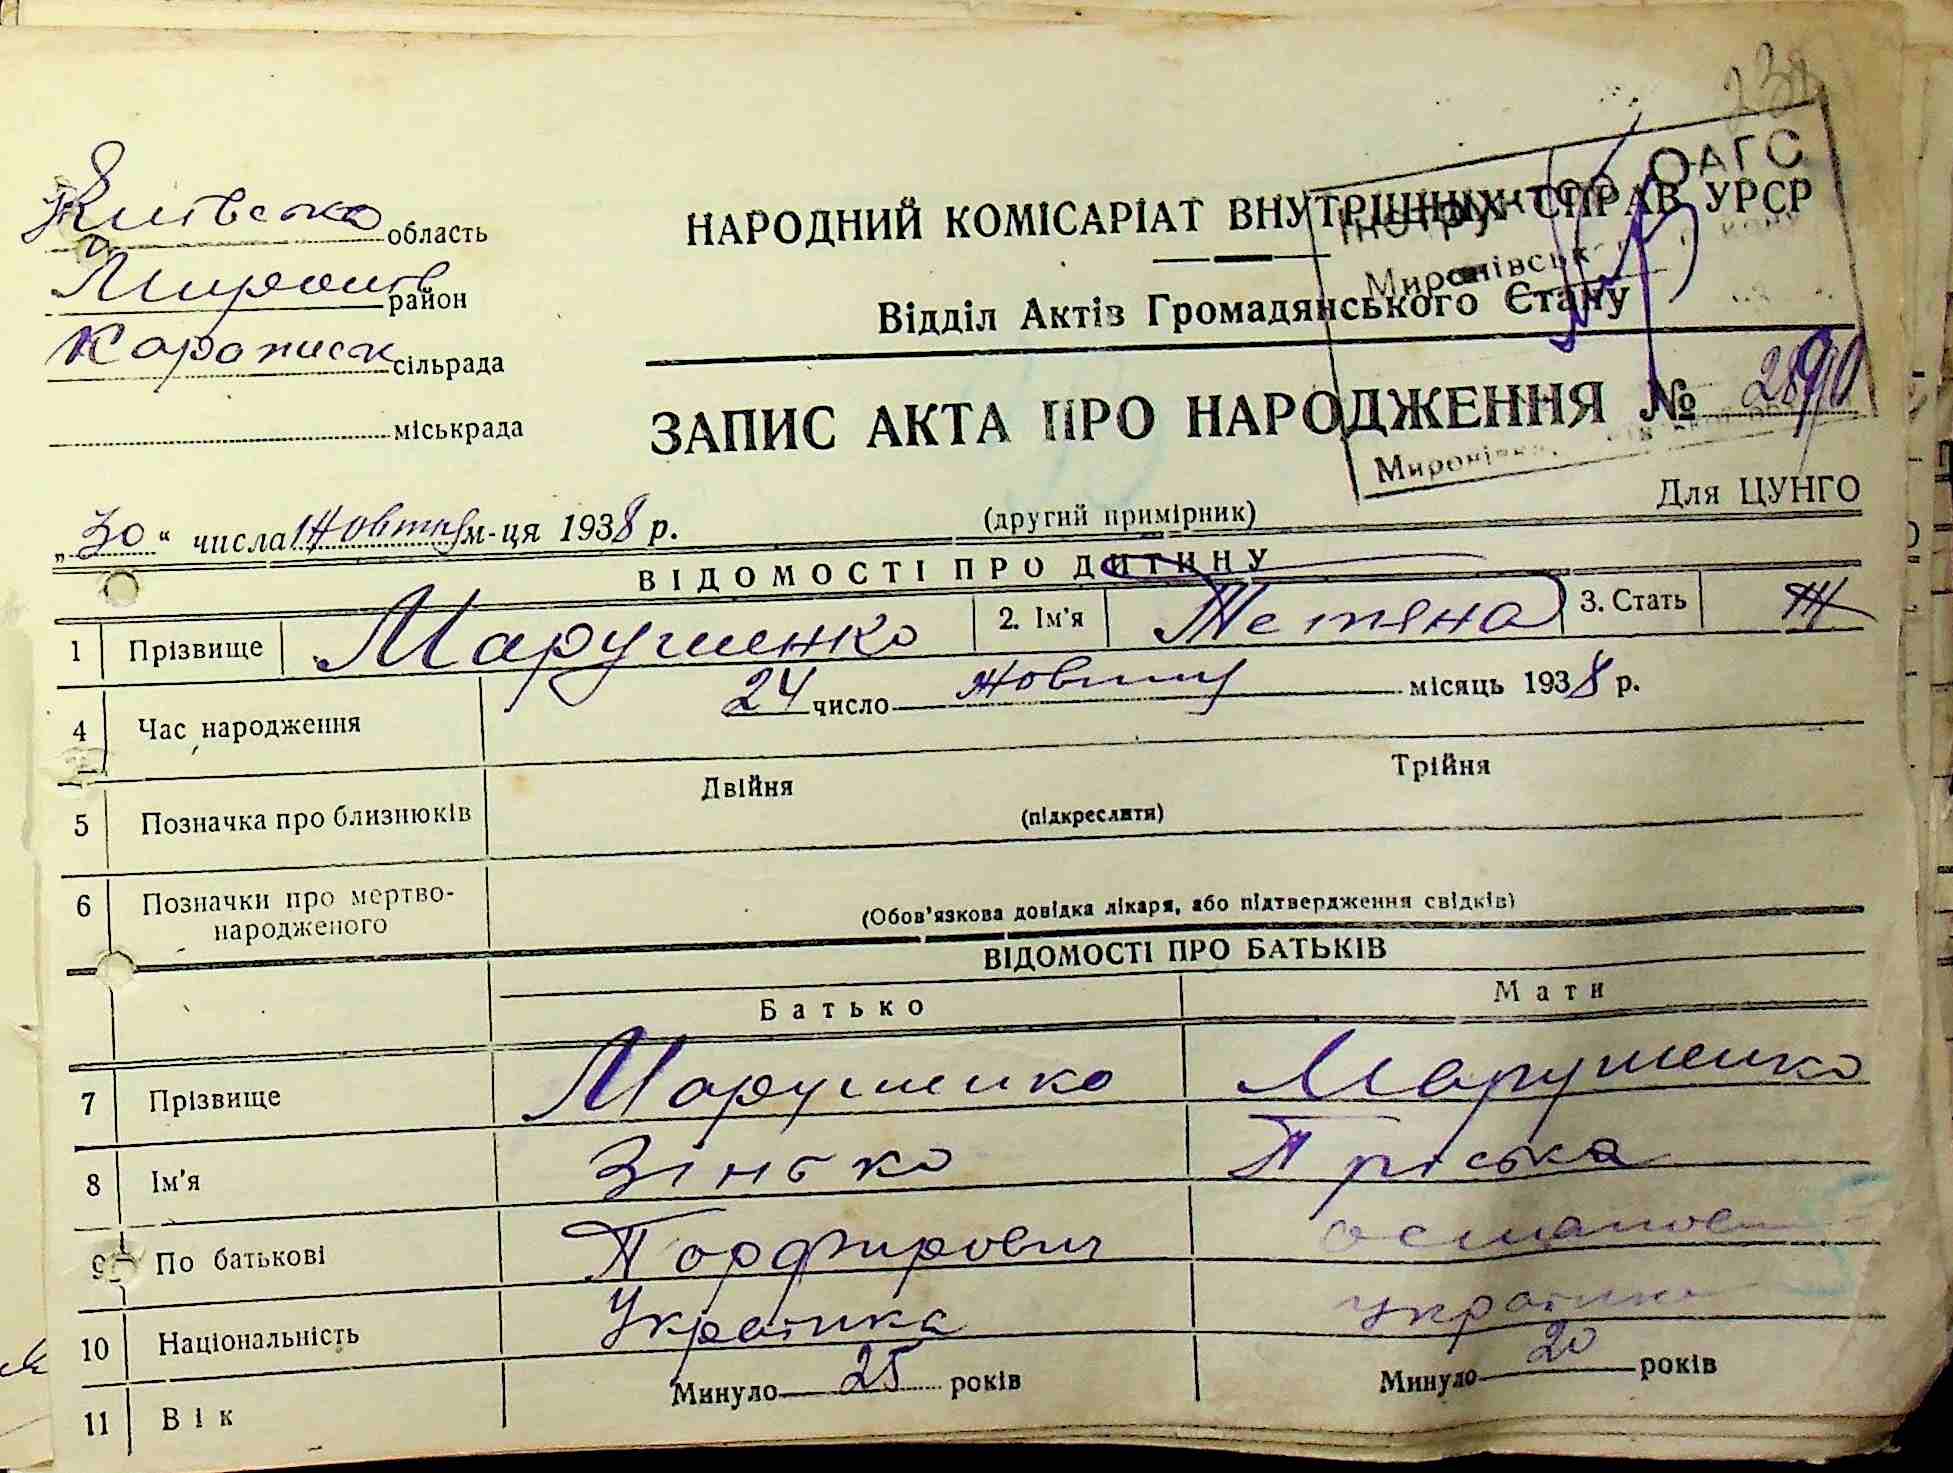 238
Київсько область
Миронів район
Караписьк сільрада
міськрада
НАРОДНИЙ КОМІСАРІАТ ВНУТРІШНІХ СПРАВ УРСР
Відділ Актів Громадянського Стану
Інструктор ОАГС
Миронівськ
ЗАПИС АКТА ПРО НАРОДЖЕННЯ №
Миронівка
Для ЦУНГО
„30“ числа Жовтня м-ця 1938 р.
(другий примірник)
ВІДОМОСТІ ПРО ДИТИНУ
1 Прізвище Марушенко 2. Ім'я Тетяна 3. Стать Ж
4 Час народження 24 число жовтня місяць 1938 р.
5 Позначка про близнюків Двійня Трійня
(підкреслити)
6 Позначки про мертво-
народженого
(Обов'язкова довідка лікаря, або підтвердження свідків)
ВІДОМОСТІ ПРО БАТЬКІВ
Батько Мати
7 Прізвище Марушенко Марушенко
8 Ім'я Зінько Пріська
9 По батькові Порфирович
10 Національність Українка Українка
11 Вік Минуло 25 років Минуло 20 років